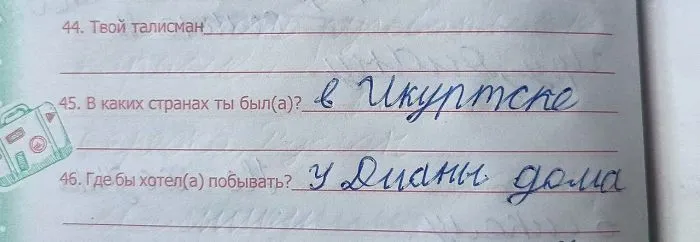 44. Твой талисман
45. В каких странах ты был(а)? в Икуртске
46. Где бы хотел(а) побывать? у Дианы дома